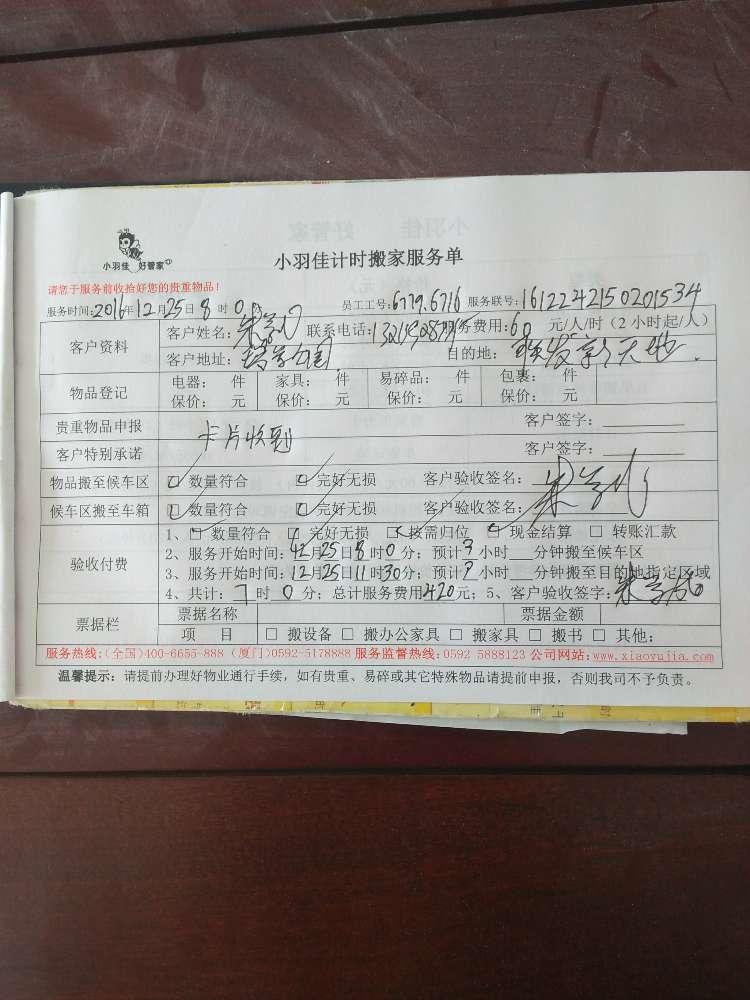 小羽佳 好管家
小羽佳计时搬家服务单
请您于服务前收拾好您的贵重物品！
服务时间：2016年12月25日8时00 员工工号：6779.6716 服务联号：1612242150201534
客户资料
客户姓名： 联系电话： 服务费用：60 元/人/时（2小时起/人）
客户地址： 公园 目的地：联发新天地.
物品登记
电器： 件 家具： 件 易碎品： 件 包裹： 件
保价： 元 保价： 元 保价： 元 保价： 元
贵重物品申报 客户签字：
卡片收到
客户特别承诺 客户签字：
物品搬至候车区 □ 数量符合 □ 完好无损 客户验收签名：
候车区搬至车箱 □ 数量符合 □ 完好无损 客户验收签名：
验收付费
1、□ 数量符合 □ 完好无损 □ 按需归位 □ 现金结算 □ 转账汇款
2、服务开始时间：12月25日8时0分；预计 小时 分钟搬至候车区
3、服务开始时间：12月25日11时30分；预计 小时 分钟搬至目的地指定区域
4、共计：7时0分；总计服务费用420元；5、客户验收签字：
票据栏
票据名称 票据金额
项 目 □ 搬设备 □ 搬办公家具 □ 搬家具 □ 搬书 □ 其他：
服务热线：（全国）400-6655-888（厦门）0592-5178888 服务监督热线：0592 5888123 公司网站：www.xiaoyujia.com
温馨提示：请提前办理好物业通行手续，如有贵重、易碎或其它特殊物品请提前申报，否则我司不予负责。